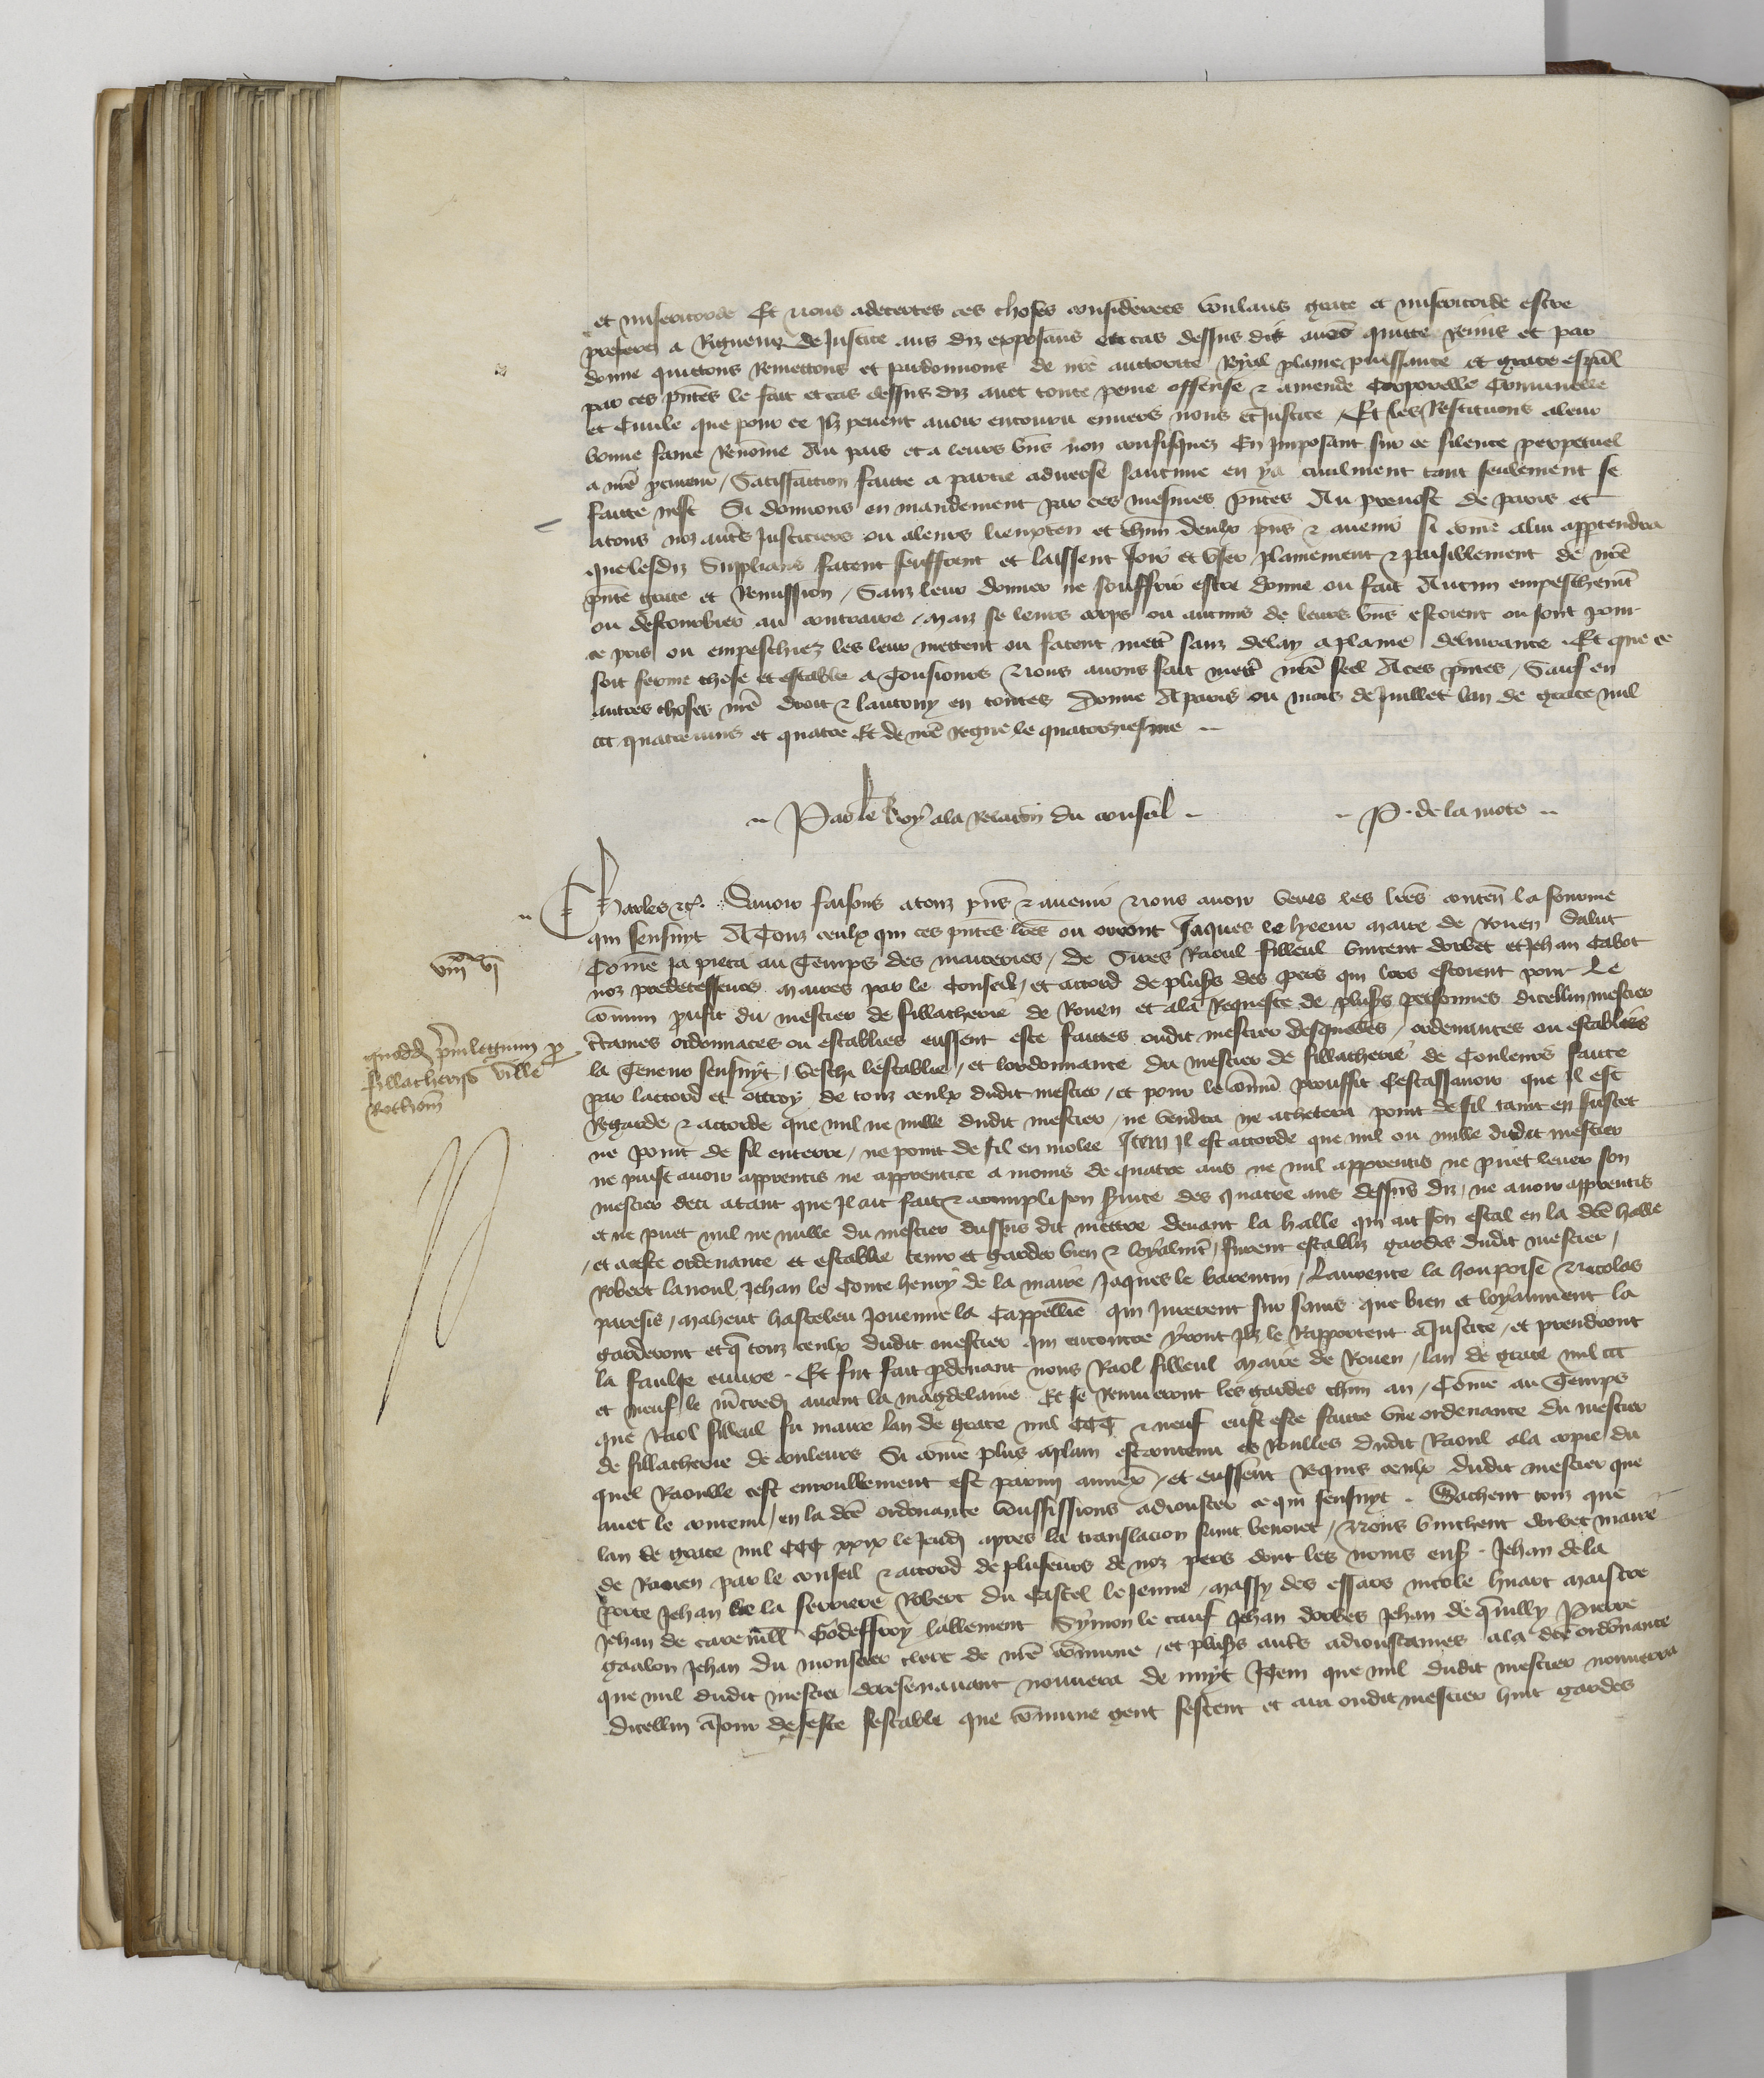 et misericorde Et nous adecertes ces choses considerees voulans grace et misericorde estre
preferez a Rigueur de Justice aus diz exposans ou cas dessus dit avons quitte remis et par
donne quittons remettons et pardonnons de nre auctorite Royal plaine puissance et grace espal
par ces pntes le fait et cas dessus diz avec toute peine offense & amende Corporelle Criminelle
et Civile que pour ce Ilz pevent avoir encouru envers nous et Justice / Et les Restituons a leur
bonne fame Renomme Au pais et a leurs bns non confisquez En Imposant sur ce silence perpetuel
a nre procureur / Satisfaction faicte a partie adverse saucune en y a civilment tant seulement se
faicte nest Si donnons en mandement par ces mesmes pntes Au prevost de paris et
a touz noz autres Justiciers ou a leurs lieuxten et chun deulx pns & avenir si come a lui appartendra
que lesdiz Supplians facent seuffrent et laissent Joir et User plainement & paisiblement de nre
pnte grace et Remission / Sanz leur donner ne souffrir estre donne ou fait Aucun empeschemt
ou destourbier au contraire / maiz se leurs corps ou aucuns de leurs bns estoient ou sont pour
ce pris ou empeschiez les leur mettent ou facent mettr sanz delay a plaine delivrance Et que ce
soit ferme chose et estable a Tousiours Nous avons fait mettr nre seel A ces pntes / Sauf en
autres choses nre droit & lautruy en toutes Donne A paris ou mois de Juillet lan de grace mil
ccc quatre vins et quatre Et de nre Regne le quatorziesme
Par le Roy a la Relacion du conseil P. de la mote
Charles &c. Savoir faisons a touz pns & avenir Nous avoir veues les lres conten la fourme
qui sensuyt A Touz ceulx qui ces pntes lres ou orront Jaques le maire de Rouen Salut
Come ja pieca au Temps des maireries / de Sires Raoul filleul Vincent dorbec et Jehan Cabot
noz predecesseurs maires par le Conseil / et accord de pluss des pers qui lors estoient pour Le
comun proufit du mestier de fillacherie de Rouen et a la Requeste de pluss personnes dicellui mestier
ctaines ordonnaces ou establies eussent este faictes oudit mestier desquelles / ordenances ou establies
la Teneur sensuyt / Veschi lestablie / et lordonnance du mestier de fillacherie de Couleurs faicte
par laccord et ottroy de touz ceulx dudit mestier / et pour le comun prouffit Cestassavoir que Il est
Regarde & accorde que nul ne nulle dudit mestier / ne vendra ne achetera point de fil taint en fustet
ne point de fil enterre / ne point de fil en molee Item Il est accorde que nul ou nulle dudit mestier
ne puist avoir apprentis ne apprentice a moins de quatre ans ne nul apprentis ne puet lever son
mestier deci atant que Il ait fait & acompli son service des quatre ans dessus diz / ne avoir apprentis
et ne puet nul ne nulle du mestier dessus dit mettre devant la halle qui ait son estal en la dce halle
/ et a ceste ordenance et establie tenir et garder bien & loyalmt / furent establiz gardes dudit mestier /
Robert lanoul Jehan le Conte henry de la maire / Jaques le barentin / Laurence la houpoise Nicolas
paresis / maheut hasteleu Jouenne la Cappellie qui Jurerent sur sains que bien et loyaument la
garderont et q touz ceulx dudit mestier qui encontre yront Ilz le Rapportent a Justice / et prendront
la faulse euvre . Et fut fait pdevant nous Raol filleul maire de Rouen / lan de grace mil ccc
et neuf le mcredi avant la magdelaine Et se Remueront les gardes chun an / Come au Temps
que Raol filleul fu maire lan de grace mil CCC & neuf eust este faicte une ordenance du mestier
de fillacherie de couleurs Si come plus a plain est contenu es Roulles dudit Raoul a la copie du
quel Raoulle cest enroullement est parmi annexe / et eussent Requis ceulx dudit mestier que
avec le contenu / en la dce ordenance voussissions adiouster ce qui sensuyt . Sachent touz que
lan de grace mil CCC xxix le Jeudi apres la translacion saint benoit / Nous Vinchent dorbec maire
de Rouen par le conseil & accord de pluseurs de noz pers dont les noms ens . Jehan de la
porte Jehan de la ferriere Robert du Castel le Jeune / massy des essars nicole huart maistre
Jehan de carevill Godeffroy lallement Symon le Jehan dorbec Jehan de quilly Pierre
gaalon Jehan du monstier clerc de nre comune / et pluss auts adioustames a la dce ordenance
que nul dudit mestier doresenavant nouvera de nuyt Item que nul dudit mestier nouvera
dicellui a Jour de feste festable que comune gent festent et aura oudit mestier huit gardes
viiixx vi
quoddam privilegium pro
fillacheriis ville
Rothom